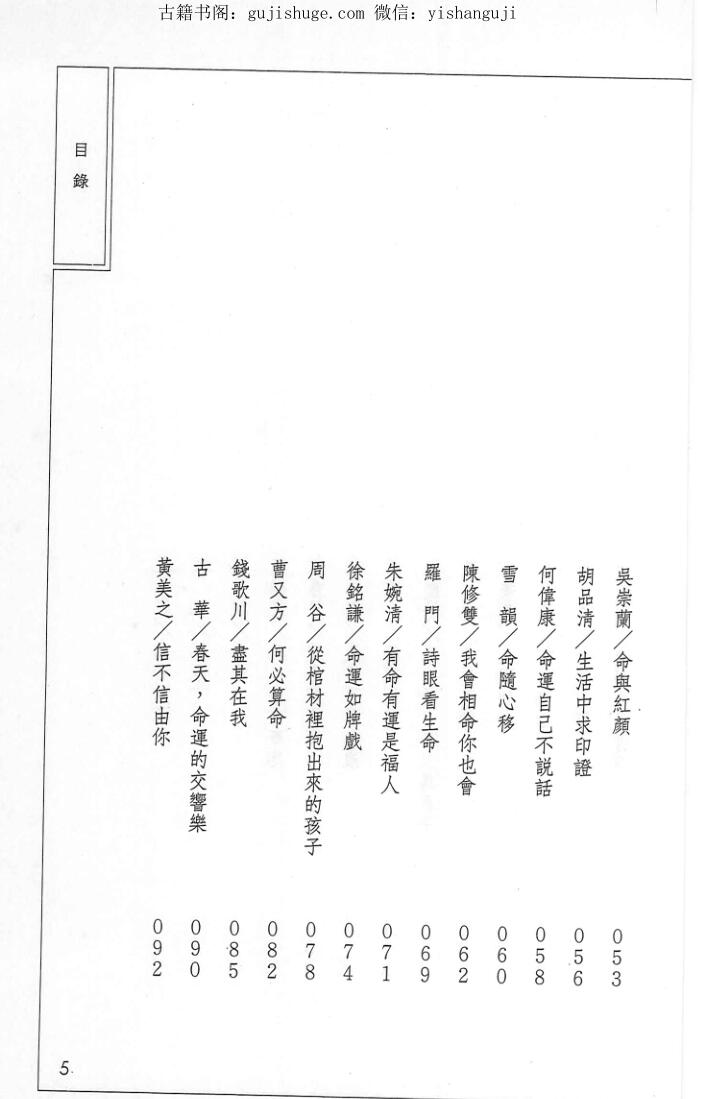 古籍书阁：gujishuge.com 微信：yishanguji
目錄
吳崇蘭／命與紅顏 053
胡品清／生活中求印證 056
何偉康／命運自己不說話 058
雪韻／命隨心移 060
陳修雙／我會相命你也會 062
羅門／詩眼看生命 069
朱婉清／有命有運是福人 071
徐銘謙／命運如牌戲 074
周谷／從棺材裡抱出來的孩子 078
曹又方／何必算命 082
錢歌川／盡其在我 085
古華／春天，命運的交響樂 090
黃美之／信不信由你 092
5